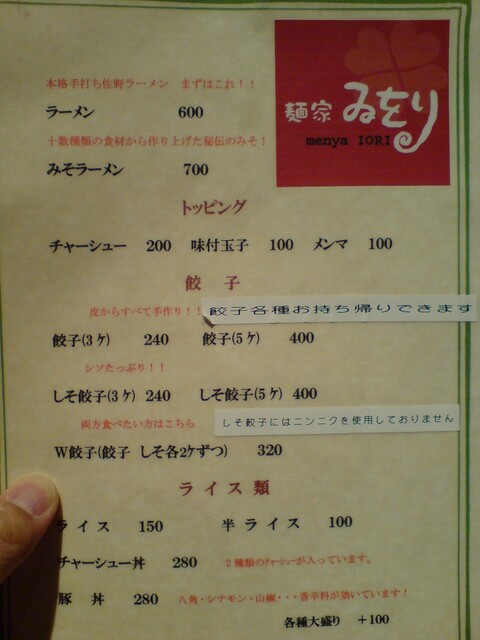 麺家 ゐをり
menya IORI
本格手打ち佐野ラーメン まずはこれ!!
ラーメン 600
十数種類の食材から作り上げた秘伝のみそ!
みそラーメン 700
トッピング
チャーシュー 200 味付玉子 100 メンマ 100
餃子
皮からすべて手作り!!
餃子各種お持ち帰りできます
餃子(3ケ) 240 餃子(5ケ) 400
シソたっぷり!!
しそ餃子(3ケ) 240 しそ餃子(5ケ) 400
両方食べたい方はこちら
しそ餃子にはニンニクを使用しておりません
W餃子(餃子 しそ各2ケずつ) 320
ライス類
ライス 150 半ライス 100
チャーシュー丼 280 2種類のチャーシューが入っています。
豚丼 280 八角・シナモン・山椒・・・香辛料が効いています!
各種大盛り +100